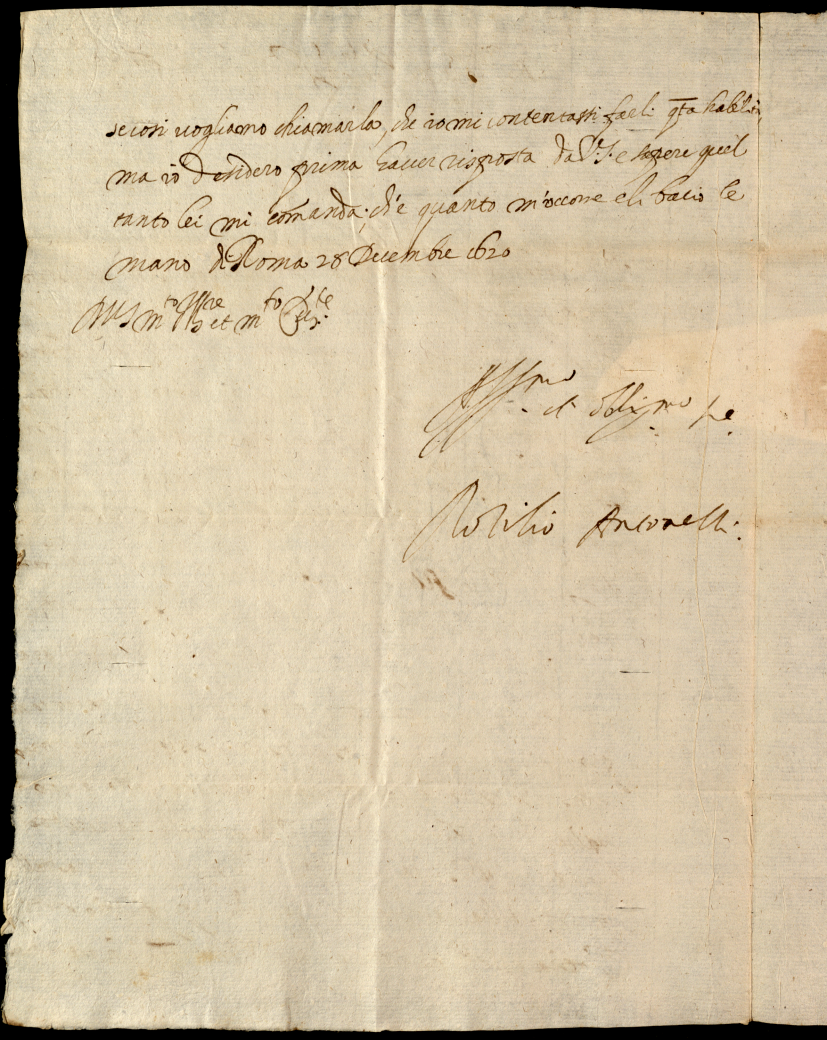 se così vogliamo chiamarla, che io mi contentassi farli q.ta habilità,
ma io desidero prima haver risposta da V.S. e sapere quel
tanto lei mi comanda; ch'è quanto m'occorre e li bacio le
mano di Roma 28 Decembre 1620
D V S m.to Ill.re et m.to
Aff.mo et obblig.mo se.
Rotilio Antonelli.